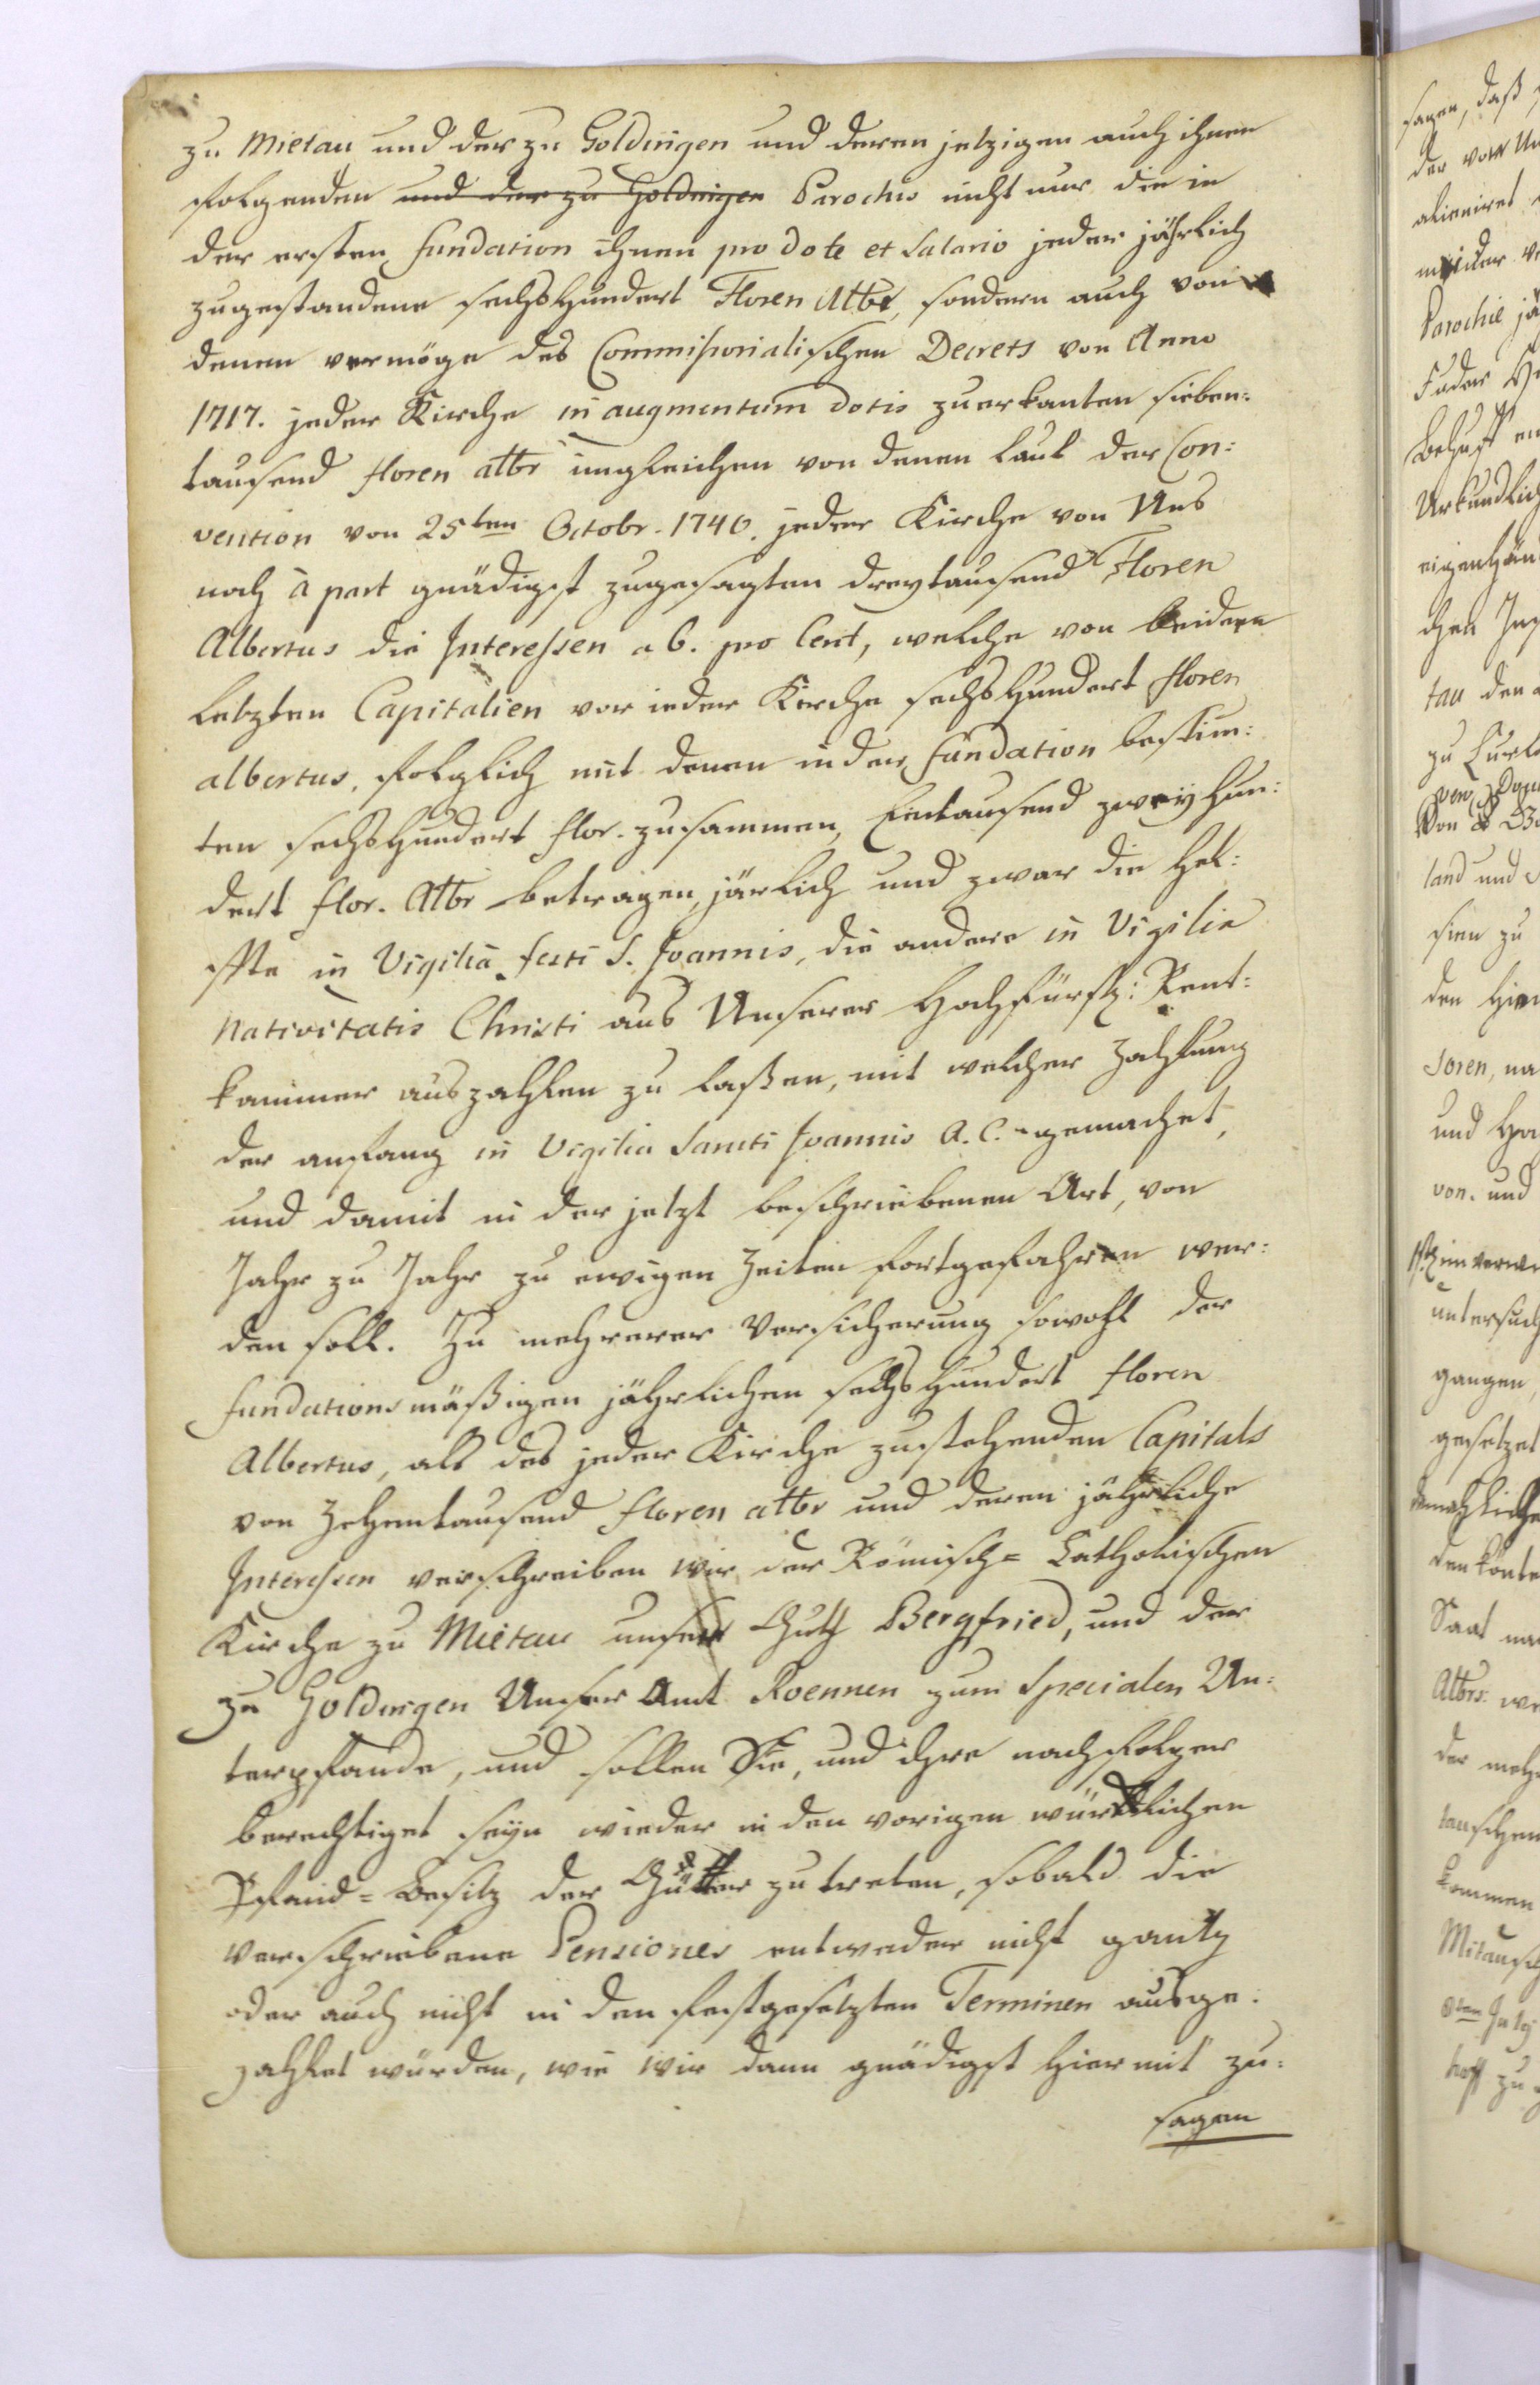 zu Mietau und der zu Goldingen und deren jetzigen auch ihnen
folgenden und der zu Goldingen Parochis nicht nur die in
der ersten Fundation ihnen pro dote et Salario jeder jährlich
zugestandene sechshundert Floren Albr, sondern auch von
denen vermöge des Commissorialischen Decrets von Anno
1717. jeder Kirche in augmentum dotis zuerkanten sieben:
tausend floren albr imgleichen von denen laut der Con:
vention von 25ten Octobr. 1740. jeder Kirche von Uns
noch à part gnädigst zugesagten dreytausend Floren
Albertus die Interessen a 6. pro Cent, welche von beiden
letzten Capitalien vor jeder Kirche sechshundert floren
albertus, folglich mit denen in der fundation bestim:
ten sechshundert flor. zusammen, Eintausend zweyhun:
dert flor. Albr betragen, järlich und zwar die Hel:
ffte in Vigilia festi S. Joannis, die andere in Vigilia
Nativitatis Christi aus Unserer Hochfürstl: Rent:
kammer auszahlen zu laßen, mit welcher Zahlung
der anfang in Vigilia Sancti Joannis a. c. gemachet,
und damit in der jetzt beschriebenen Art, von
Jahr zu Jahr zu ewigen Zeiten fortgefahren wer:
den soll. Zu mehrerer Versicherung sowohl der
fundationsmäßigen jährlichen sechshundert floren
Albertus, als des jeder Kirche zustehenden Capitals
von Zehentausend floren albr und deren jährliche
Interessen verschreiben wir der Römisch= Catholischen
Kirche zu Mietau unser Guth Bergfried, und der
zu Goldingen Unser Amt Roennen zum Specialen Un:
terpfande, und sollen Sie, und ihre nachfolger
berechtiget seyn wieder in den vorigen würcklichen
Pfand=Besitz der Gütter zu treten, sobald die
verschriebene Pensiones entweder nicht gantz
oder auch nicht in den festgesetzten Terminen ausge:
zahlet würden, wie wir dann gnädigst hiermit zu:
sagen
sagen, daß
der von
alieniret
Parochie
Behuff
Urkundlich
tau den
land und
den
und
von. und
untersuch
gangen,
gesetzet
den könte
Saat
Albrs:
der
kommen
Mitausch
8ten July
hoff zu